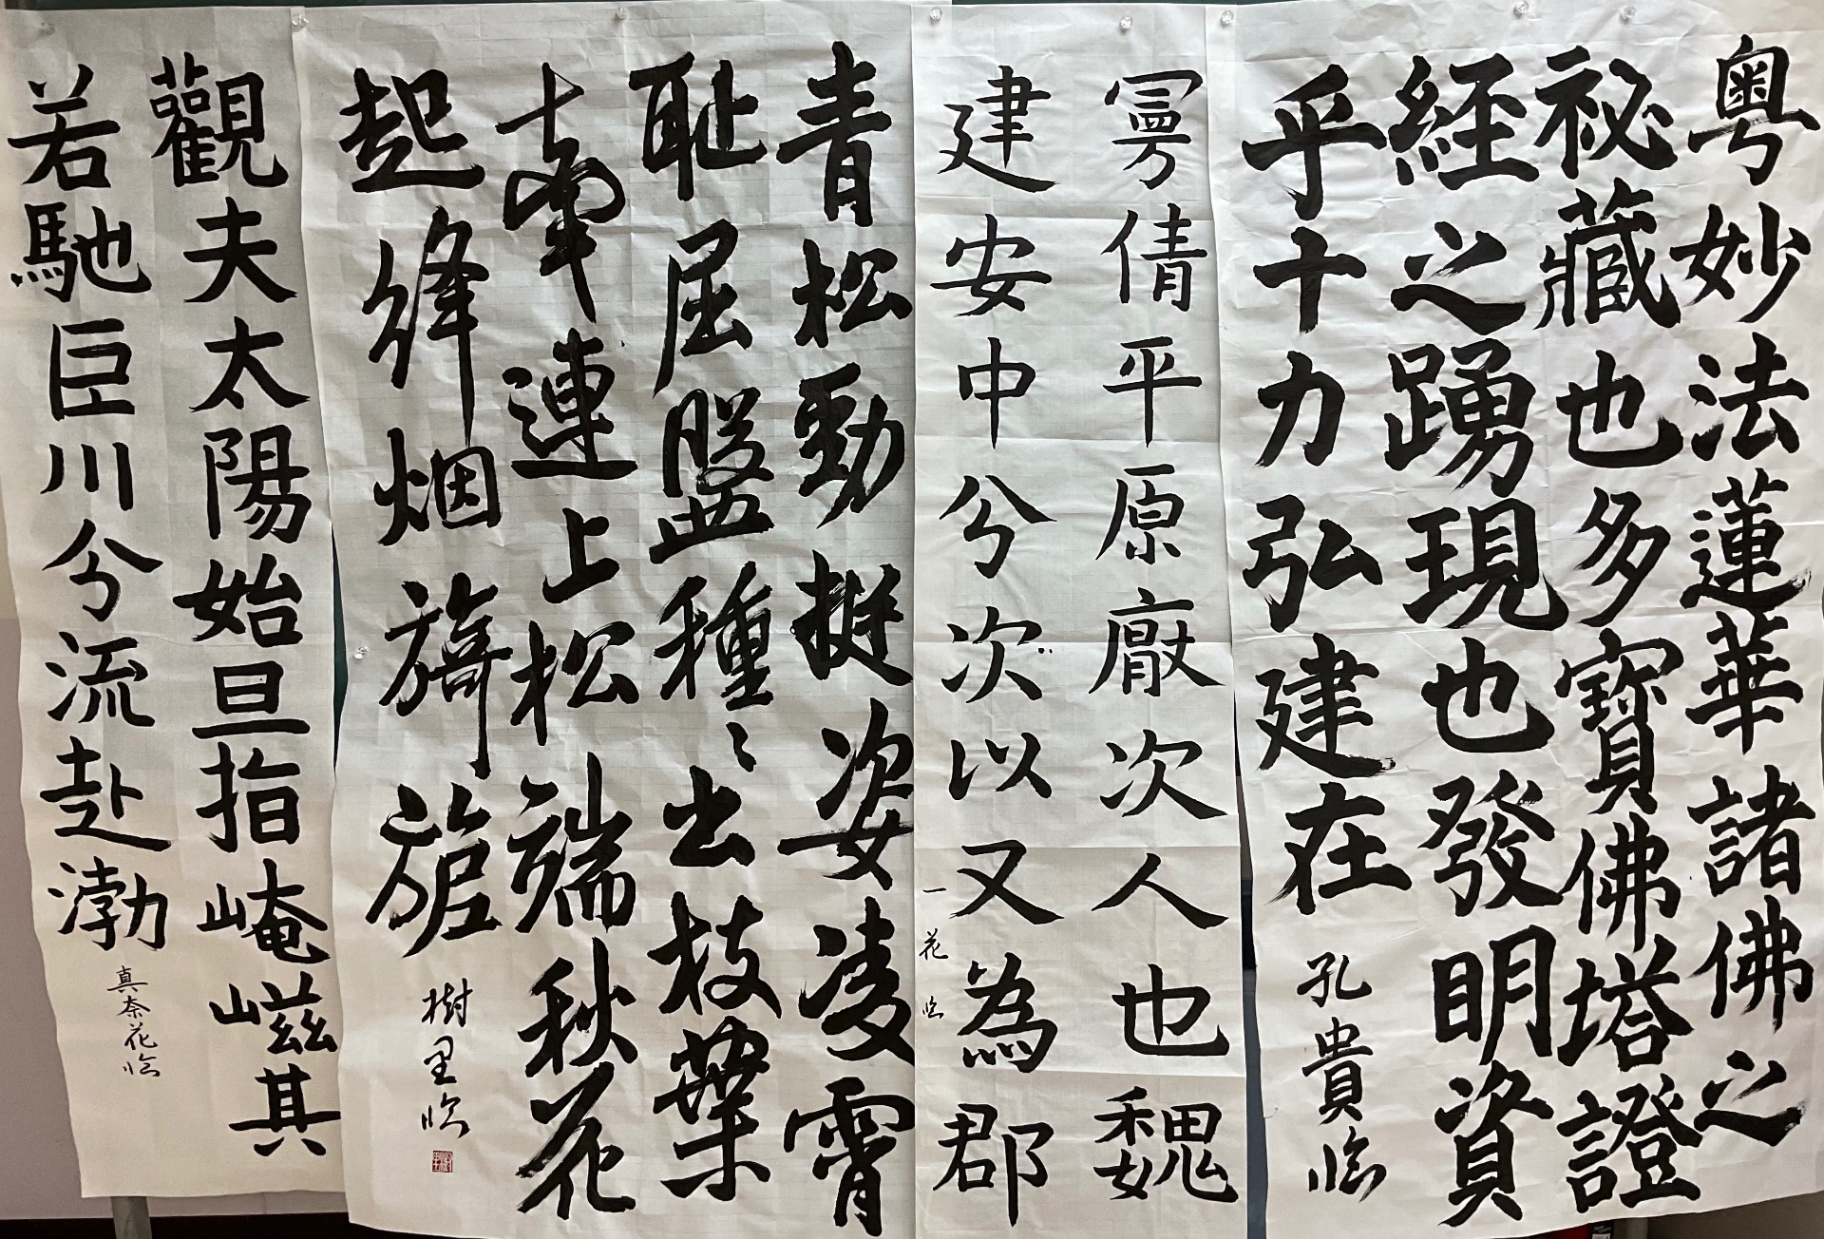 粤妙法蓮華諸佛之
祕藏也多寶佛塔證
經之踴現也發明資
乎十力弘建在
孔貴臨
曼倩平原厭次人也魏
建安中分次以又為郡
一花臨
青松勁挺姿凌霄
恥屈盤種々出枝葉
牽連上松端秋花
起絳烟旖旎
樹里臨
觀夫太陽始旦指崦嵫其
若馳巨川分流赴渤
真奈花臨